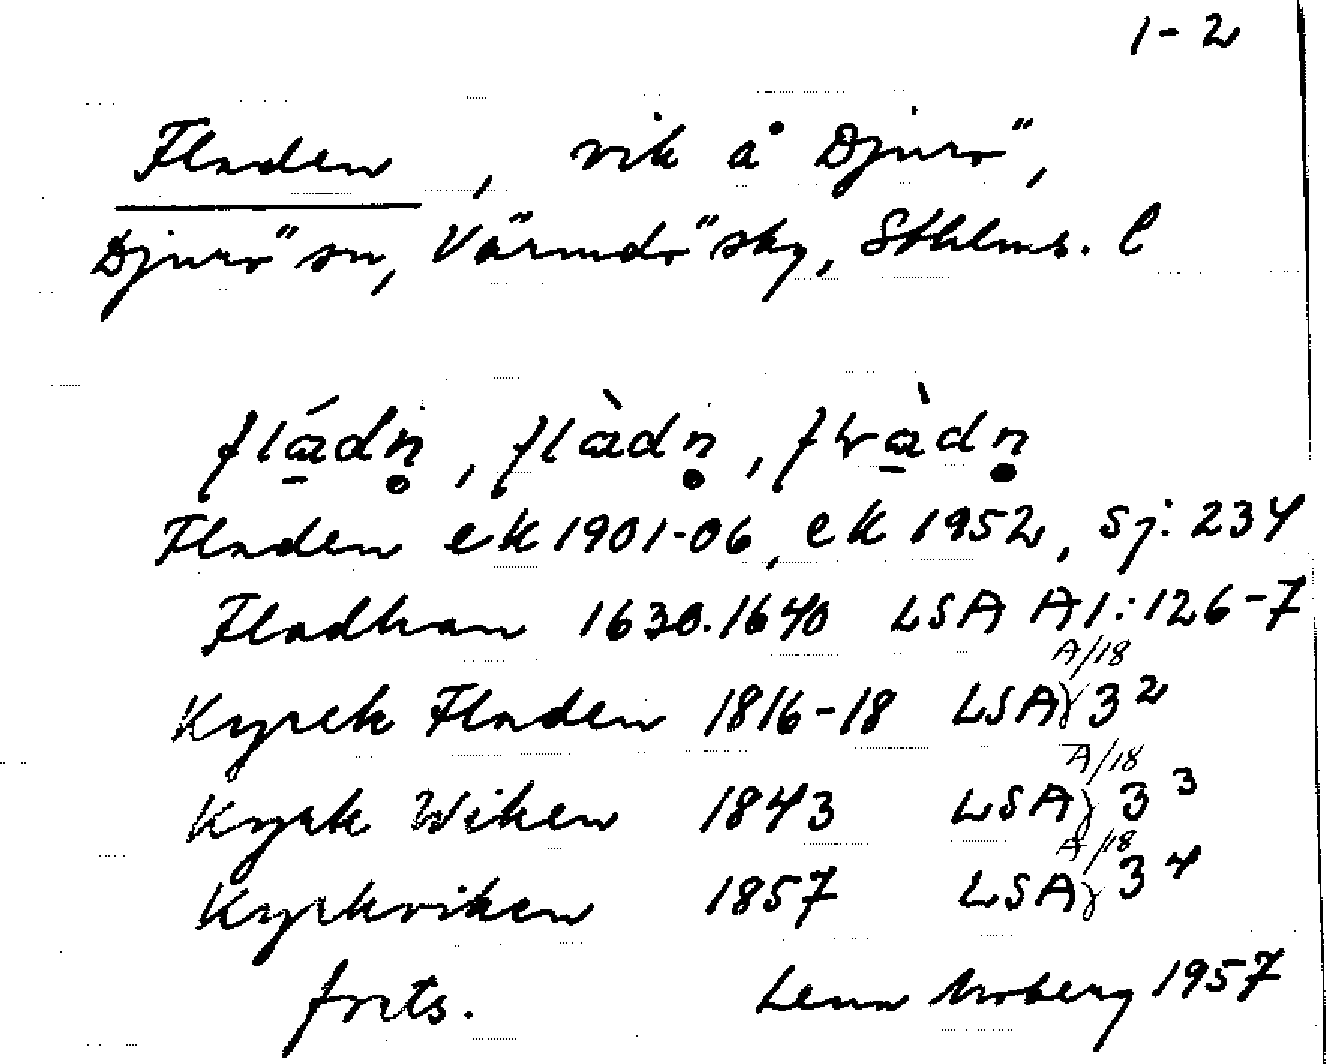 1-2
Fladen, vik å Djurö,
Djurö sn, Värmdö sky, Sthlms. l
flá̱dn̥, flàdn̥, fɽà̱dn̥
Fladen ek 1901-06, ek 1952, Sj: 234
Fladhan 1630.1640 LSA A1:126-7
Kyrck Fladen 1816-18 LSA A/18 3²
Kyrk Wiken 1843 LSA A/18 3³
Kyrkviken 1857 LSA A/18 3⁴
forts. Lena Moberg 1957